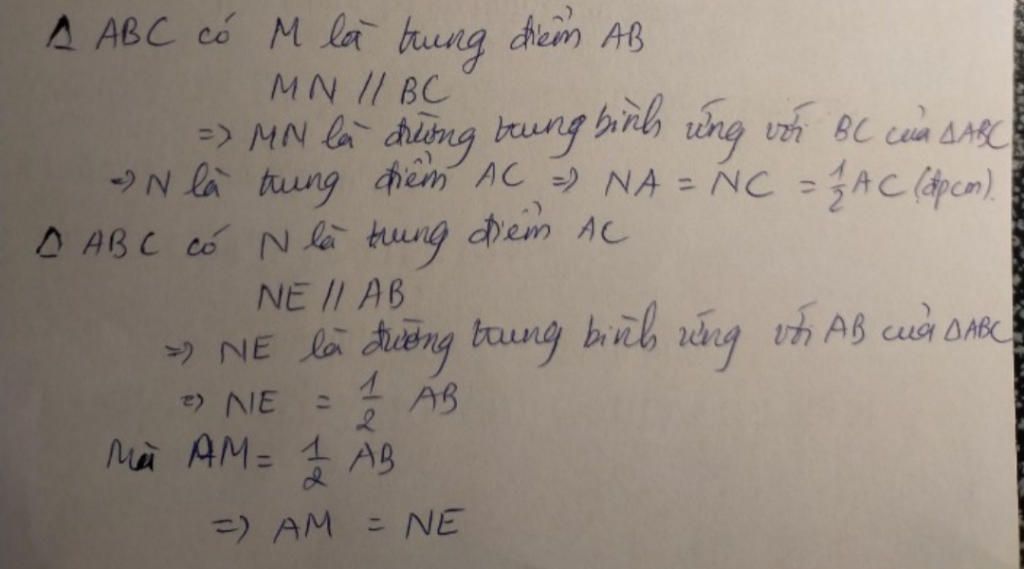 Δ ABC có M là trung điểm AB
MN // BC
=> MN là đường trung bình ứng với BC của ΔABC
=> N là trung điểm AC => NA = NC = 1/2 AC (đpcm).
Δ ABC có N là trung điểm AC
NE // AB
=> NE là đường trung bình ứng với AB của ΔABC
=> NE = 1/2 AB
Mà AM = 1/2 AB
=> AM = NE